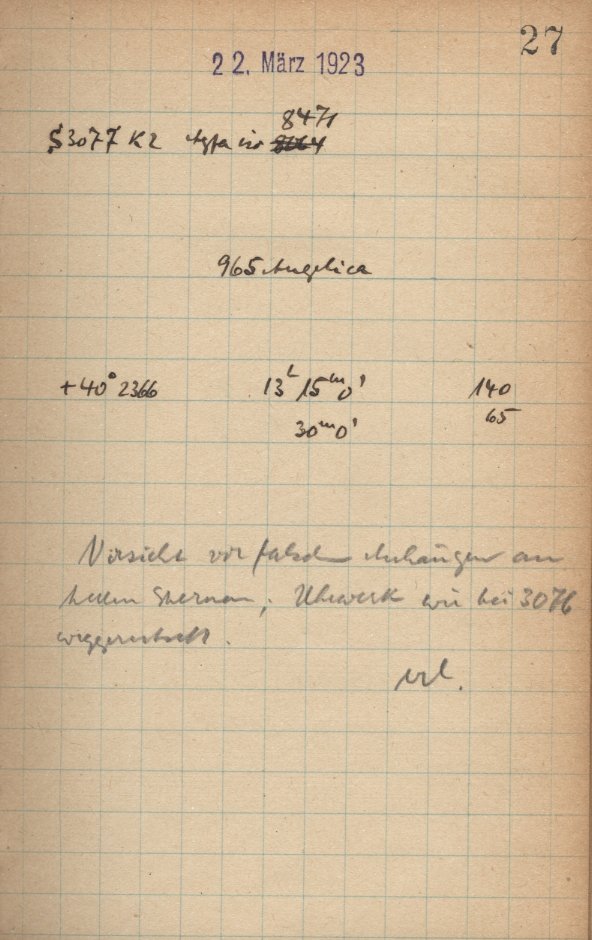 27
22. März 1923
8471
S3077 K2 Agfa iso 8164
965 Angelica
+40° 2366 13h 15m 0s 140
30m 0s 65
Vorsicht vor falschen Anhängern an
hellen Sternen; Uhrwerk wie bei 3076
weggerutscht.